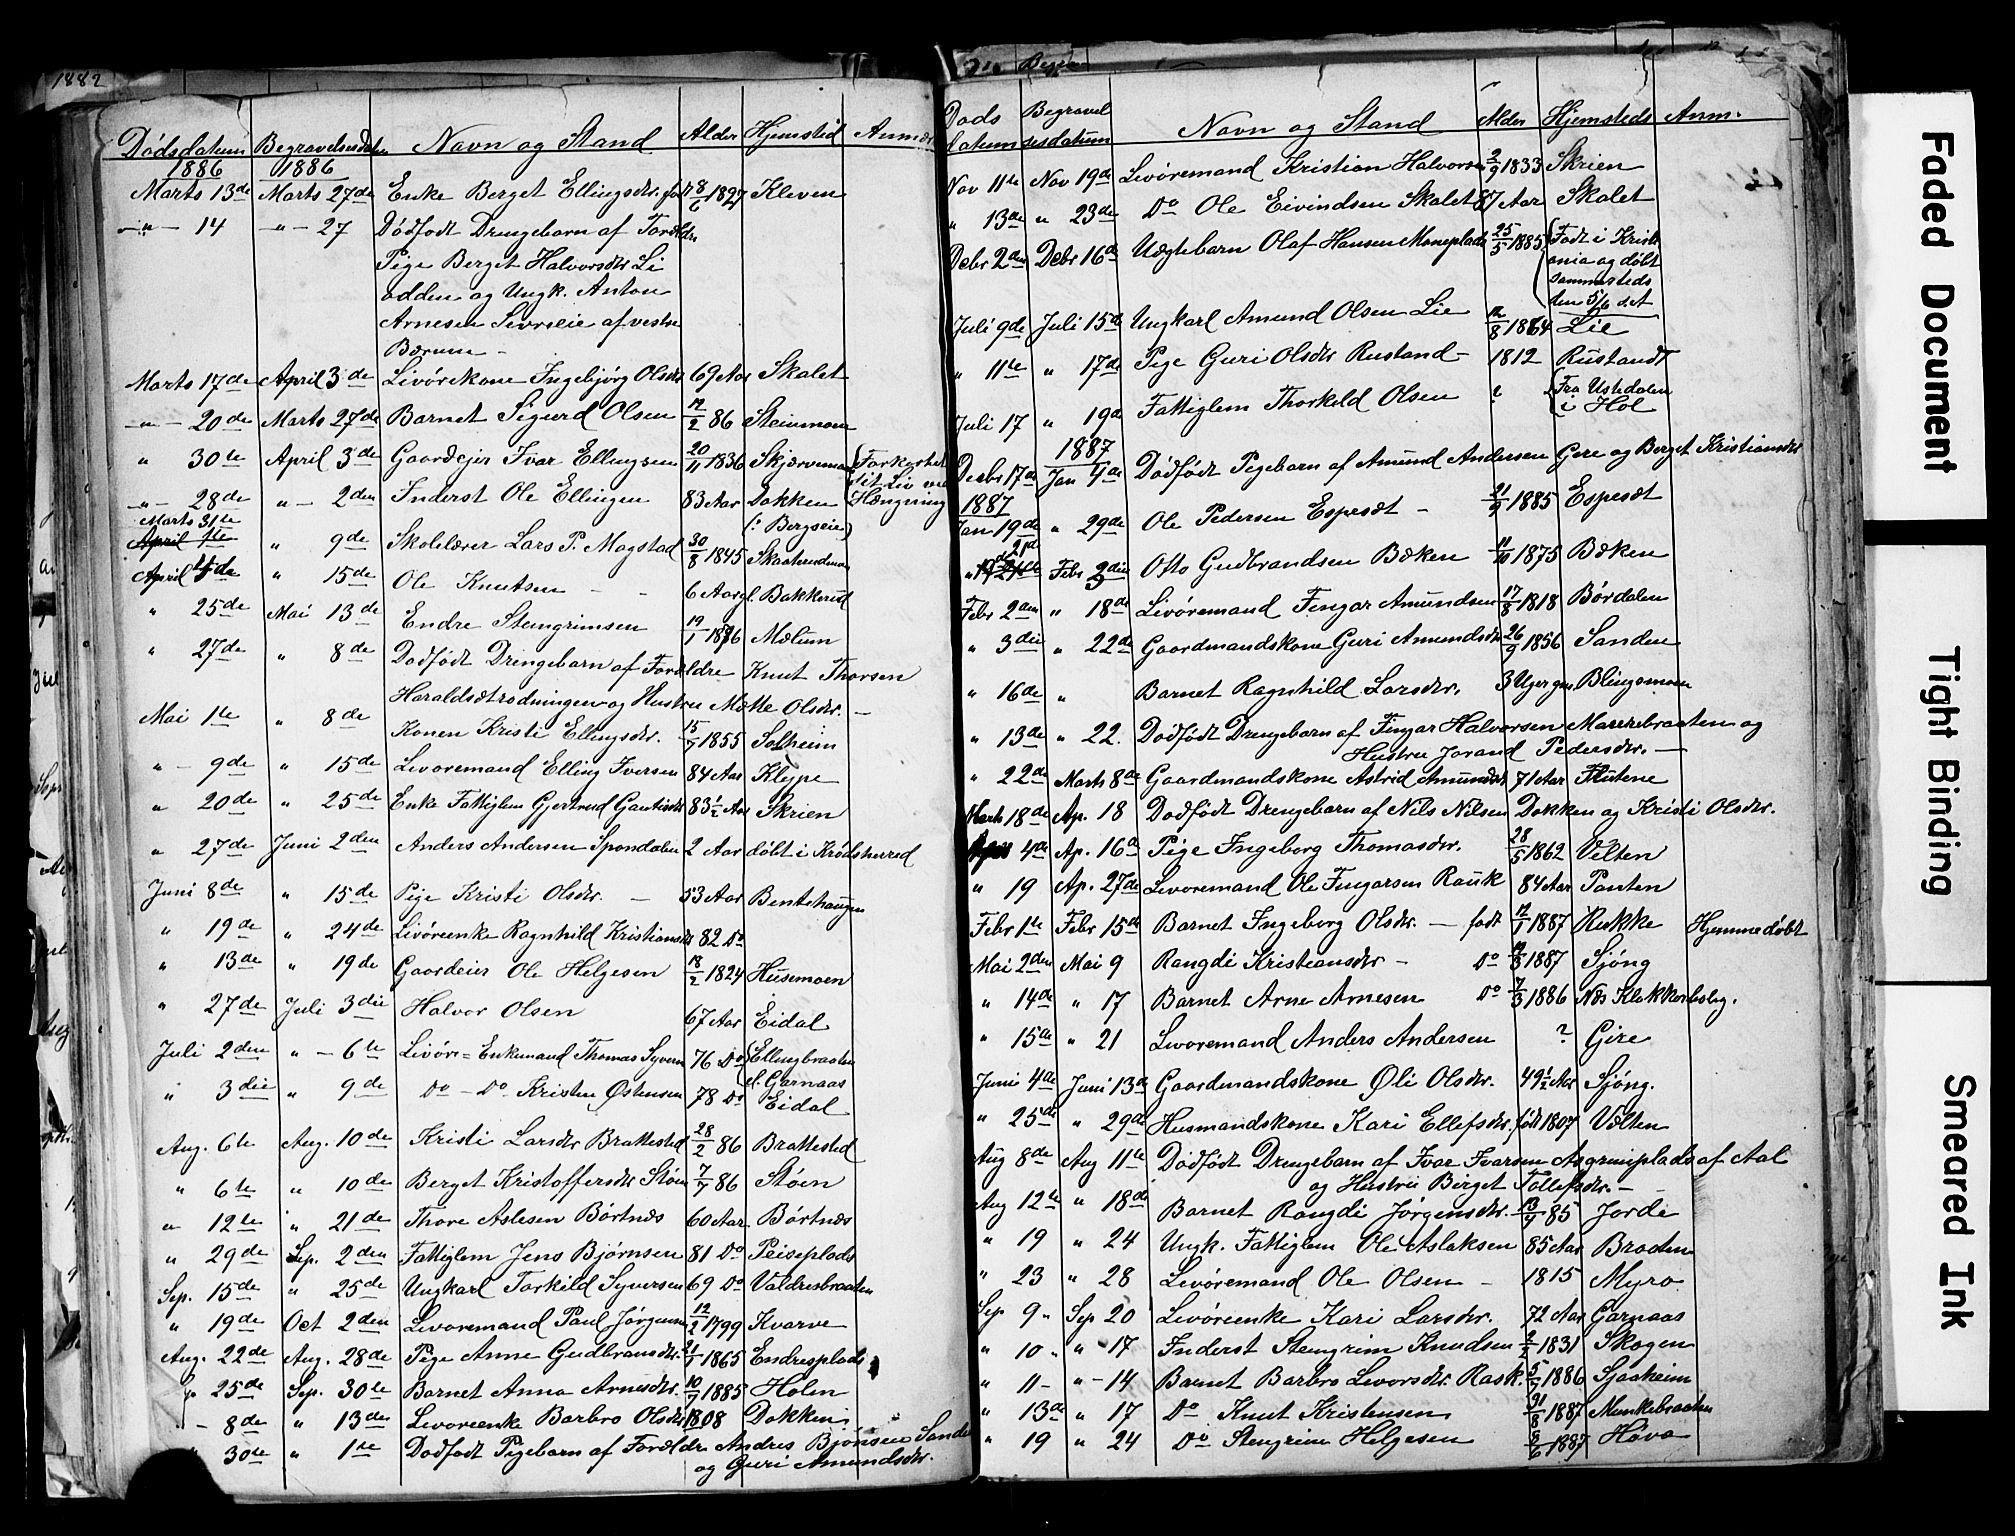 1882
Dødsdatum Begravelsesdatum Navn og Stand Alder Hjemsted Anmærk
1886 1886
Marts 13de Marts 27de Enke Berget Ellingsdtr. født 8/6 1827 Kleven
-"- 14 -"- 27 Dødfødt Drengebarn af Forældre
Pige Berget Halvorsdtr Li
odden og Ungk. Anton
Arnesen Sevreeie af vestre
Bærum -
Marts 17de April 3de Livørekone Ingebjørg Olsdtr 69 Aar Skalet
-"- 20de Marts 27de Barnet Sigurd Olsen 12/2 86 Steinmoen
" 30te April 3de Gaardejer Ivar Ellingsen 20/11 1836 Skjærvemoen (Forkortet
sit Liv ved
-"- 28de -"- 2den Inderst Ole Ellingen 83 Aar Dokken Hængning
Marts 31te (: Bergseie)
April 1te " 9de Skolelærer Lars P. Magstad 30/8 1845
April 4de " 15de Ole Knutsen - - 6 Aar gl. Bakkerud
" 25de Mai 13de Endre Steingrimsen 19/1 1876 Mælum
" 27de " 8de Dødfødt Drengebarn af Forældre Knut Thorsen
og Hustru Mætte Olsdtr. -
Mai 1te " 8de Konen Kristi Ellingsdtr. 15/7 1855 Solheim
" - 9de " 15de Livøremand Elling Iversen 84 Aar Kleppe
" 20de " 25de Enke Fattiglem Gjertrud Gautisdtr 83 1/2 Aar Skrien
" 27de Juni 2den Anders Andersen Spondalen 2 Aar døbt i Krødsherred
Juni 8de " 15de Pige Kristi Olsdtr. - 53 Aar Bentehaugen
" 19de " 24de Livøreenke Ragnhild Kristiansdtr 82 Do
" 13de " 19de Gaardeier Ole Helgesen 18/2 1824 Husemoen
" 27de Juli 3die Halvor Olsen 67 Aar Eidal
Juli 2den " - 6te Livøre=Enkemand Thomas Syvern 76 Do (Ellingbraaten
el. Garnaas
" 3die " 9de Do - Do Kristen Østensen 78 Do Eidal
Aug. 6te Aug. 10de Kristi Larsdtr Brattested 28/2 86 Brattested
" 6te " 10de Berget Kristoffersdtr Støen 7/7 86 Støen
" 12te " 21de Thore Aslesen Børtnæs 60 Aar Børtnæs
" 29de Sep. 2den Fattiglem Jens Bjørnsen 81 Do Peiseplads
Sep. 15de " 25de Ungkarl Torkild Syversen 69 Do Valdresbraaten
" 19de Oct 2den Livøremand Paul Jørgensen 12/2 1799 Kvarve
Aug. 22de Aug. 28de Pige Anne Gudbransdtr. 21/1 1865 Endresplads
" 25de Sep. 30te Barnet Anna Arnesdtr. 10/7 1885 Holen
" - 8de " 13de Livøreenke Barbro Olsdtr 1808 Dokken
" 30te " 1te Dødfødt Pigebarn af Forældre Andres Bjønsen Sande
og Guri Amundsdtr.
Døds Begravel Navn og Stand Alder Hjemsteds Anm.
datum sesdatum
Nov 11te Nov 19de Livøremand Kristian Halvorsen 2/9 1833 Skrien
" 13de " 23de Do Ole Eivindsen Skalet 87 Aar Skalet
Debr 2den Debr 16de Uægtebarn Olaf Hansen Moneplads 25/5 1885 (Født i Kristi
ania og døbt
sammesteds
den 5/6 s.A
Juli 9de Juli 15de Ungkarl Amund Olsen Lie 12/8 1864 Lie
" 11te " 17de Pige Guri Olsdtr Rustand - 1812 Rustandt
Juli 17 " 19de Fattiglem Thorkeld Olsen ? (Fra Ustedalen
i Hol
1887
Decbr 17de Jan 4de Dødfødt Pigebarn af Amund Andersen Gere og Berget Kristiansdtr
1887
Jan 19de " 29de Ole Pedersen Espesæt - 21/9 1885 Espesæt
21de
Febr 3die Otto Gudbrandsen Bæken 11/10 1875 Bæken
Febr 2den " 18de Livøremand Fingar Amundsen 17/8 1818 Børdalen
" 3die " 22de Gaardmandskone Guri Amundsdtr 26/9 1856 Sanden
" 16de " Barnet Ragnhild Larsdtr. 3 Uger gm Blingsmoen
" 13de " 22. Dødfødt Drengebarn af Fingar Halvorsen Markebraaten og
Hustru Jorand Pedersdtr. -
" 22de Marts 8de Gaardmandskone Astrid Amundsdtr 71 Aar Flutene
Marts 18de Ap. 18 Dødfødt Drengebarn af Nils Nilsen Dokken og Kristi Olsdtr.
April 4de Ap. 16de Pige Ingeborg Thomasdtr. 28/5 1862 Velten
" 19 Ap. 27de Livøremand Ole Fingarsen Rauk 84 Aar Panten
Febr 1te Febr 15de Barnet Ingeborg Olsdtr. - født 12/1 1887 Rukke Hjemmedøbt
Mai 2den Mai 9 Rangdi Kristiansdtr - Do 12/3 1887 Sjöng
" 14de " 17 Barnet Arne Arnesen Do 7/3 1886 Næs Klokkerbolig.
" 15de " 21 Livøremand Anders Andersen ? Gire
Juni 4de Juni 13de Gaardmandskone Øli Olsdtr. 49 1/2 Aar Sjöng.
" 25de " 29de Husmandskone Kari Ellefsdtr. født 1807 Vølten
Aug 8de Aug 11te Dødfødt Drengebarn af Ivar Ivarsen Asgrimsplads af Aal
og Hustru Berget Tollefsdtr. -
Aug 12te " 18de Barnet Rangdi Jørgensdtr. 13/4 85 Jorde
" 19 " 24 Ungk. Fattiglem Ole Aslaksen 85 Aar Braaten
" 23 " 28 Livøremand Ole Olsen - 1815 Myro
Sep 9 " Sep 20 Livøreenke Kari Larsdtr. 72 Aar Garnaas
" 10 " " 17 Inderst Steingrim Knudsen 2/2 1831 Skogen
" 11 - " - 14 Barnet Barbro Levorsdtr. Rask. 5/7 1886 Sjaaheim
" 13de " 17 Do Knut Kristensen 31/8 1887 Munkebraaten
" 19 " 24 Do Stengrim Helgesen 8/6 1887 Hove
Faded Document
Tight Binding
Smeared Ink